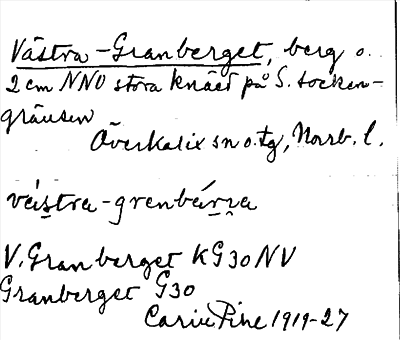 Västra-Granberget, berg o.
2 cm NNO stora knäet på S. socken-
gränsen
Överkalix sn o. tg, Norrb. l.
västra-grenbärra
V. Granberget KG30NV
Granberget G30
Carin Pihl 1919-27